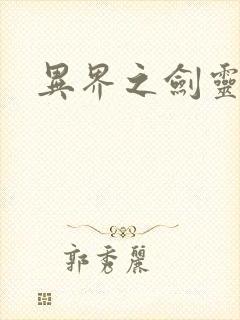 異界之劍靈
郭秀麗